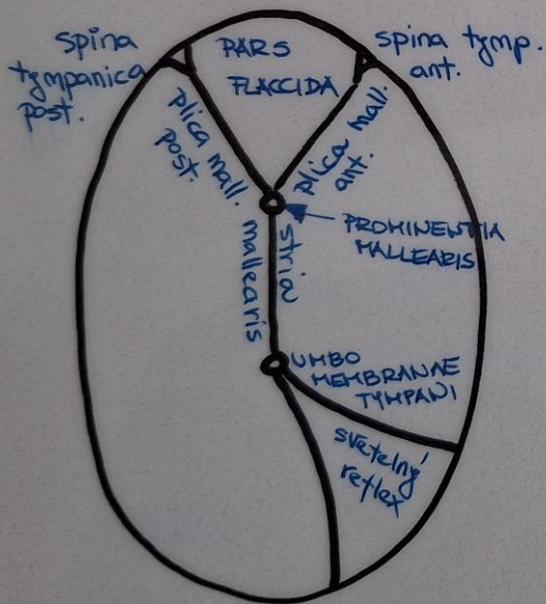 spina
tympanica
post.
PARS
FLACCIDA
spina tymp.
ant.
plica mall.
post.
plica mall.
ant.
PROMINENTIA
MALLEARIS
stria
mallearis
UMBO
MEMBRANAE
TYMPANI
svetelný
reflex